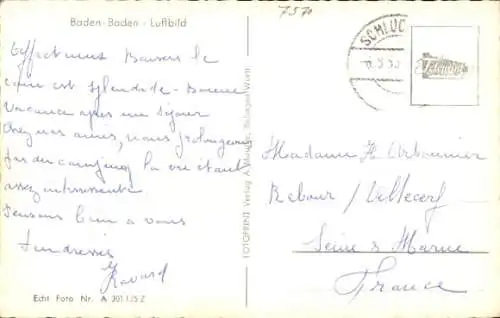 Baden-Baden - Luftbild
757
SCHLUC
Affectueux Baisers le
coin est splendide - Bonne
Vacance après un séjour
chez nos amis, nous prolongeons
par du camping la vie étant
assez intéressante
Pensons bien a vous
Tendresses
Ravard
Echt Foto Nr. A 301 125 Z
FOTOPRINT Verlag A.
Madame H. Arbonnier
Rebour / Villecerf
Seine & Marne
France